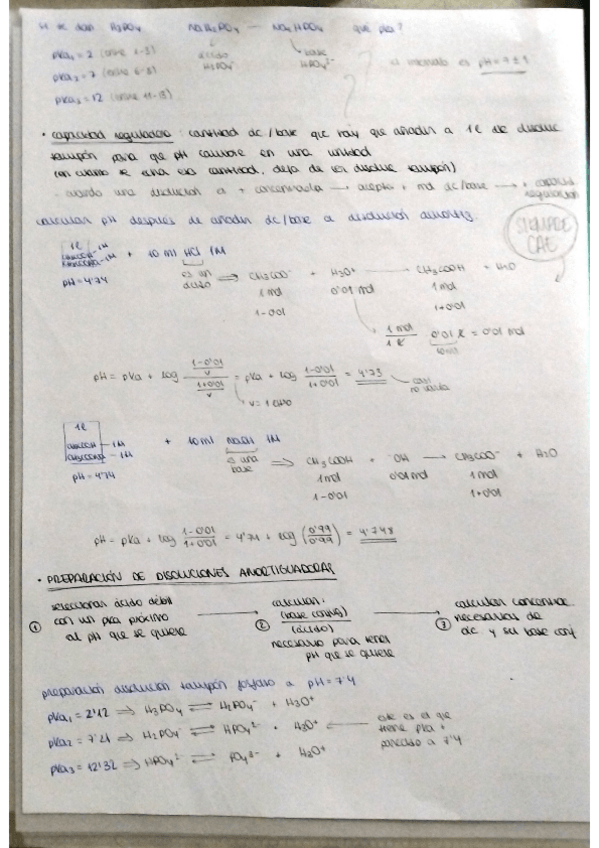 si se dan H₃PO₄ NaH₂PO₄ — Na₂HPO₄ qué pka?
pka₁ = 2 (entre 1-3) ácido base
H₂PO₄⁻ HPO₄²⁻
pka₂ = 7 (entre 6-8) el intervalo es pH =
pka₃ = 12 (entre 11-13)
• capacidad reguladora: cantidad ác/base que hay que añadir a 1ℓ de disoluc
tampón para que pH cambie en una unidad
(en cuanto se echa esa cantidad, deja de ser disoluc tampón)
- cuando una disolución a + concentrada → acepta + mol ác/base → + capacidad
regulación
calcular pH después de añadir ác/base a disolución amortig.
SIEMPRE
CAE
1ℓ
CH₃COOH - 1M
CH₃COONa - 1M
+ 10 ml HCl 1M
pH = 4'74
es un
ácido
⇒ CH₃COO⁻ + H₃O⁺ → CH₃COOH + H₂O
1 mol 0'01 mol 1 mol
1-0'01 1+0'01
1 mol / 1ℓ 0'01 ℓ = 0'01 mol
10 ml
pH = pKa + log (1-0'01 / v) / (1+0'01 / v) = pKa + log (1-0'01) / (1+0'01) = 4'73
casi
no varía
1ℓ
CH₃COOH - 1M
CH₃COONa - 1M
+ 10 ml NaOH 1M
pH = 4'74
es una
base
⇒ CH₃COOH + ⁻OH → CH₃COO⁻ + H₂O
1 mol 0'01 mol 1 mol
1-0'01 1+0'01
pH = pKa + log (1-0'01) / (1+0'01) = 4'74 + log (0'99 / 0'99) = 4'748
• PREPARACIÓN DE DISOLUCIONES AMORTIGUADORAS
① seleccionar ácido débil
con un pka próximo
al pH que se quiere
→
② calcular:
(base conjug) / (ácido)
necesario para tener
pH que se quiere
→
③ calcular concentrac
necesarias de
ác y su base conj
preparación disolución tampón fosfato a pH = 7'4
pKa₁ = 2'12 ⇒ H₃PO₄ ⇄ H₂PO₄⁻ + H₃O⁺
pKa₂ = 7'21 ⇒ H₂PO₄⁻ ⇄ HPO₄²⁻ + H₃O⁺ ← este es el que
tiene pka +
parecido a 7'4
pKa₃ = 12'32 ⇒ HPO₄²⁻ ⇄ PO₄³⁻ + H₃O⁺